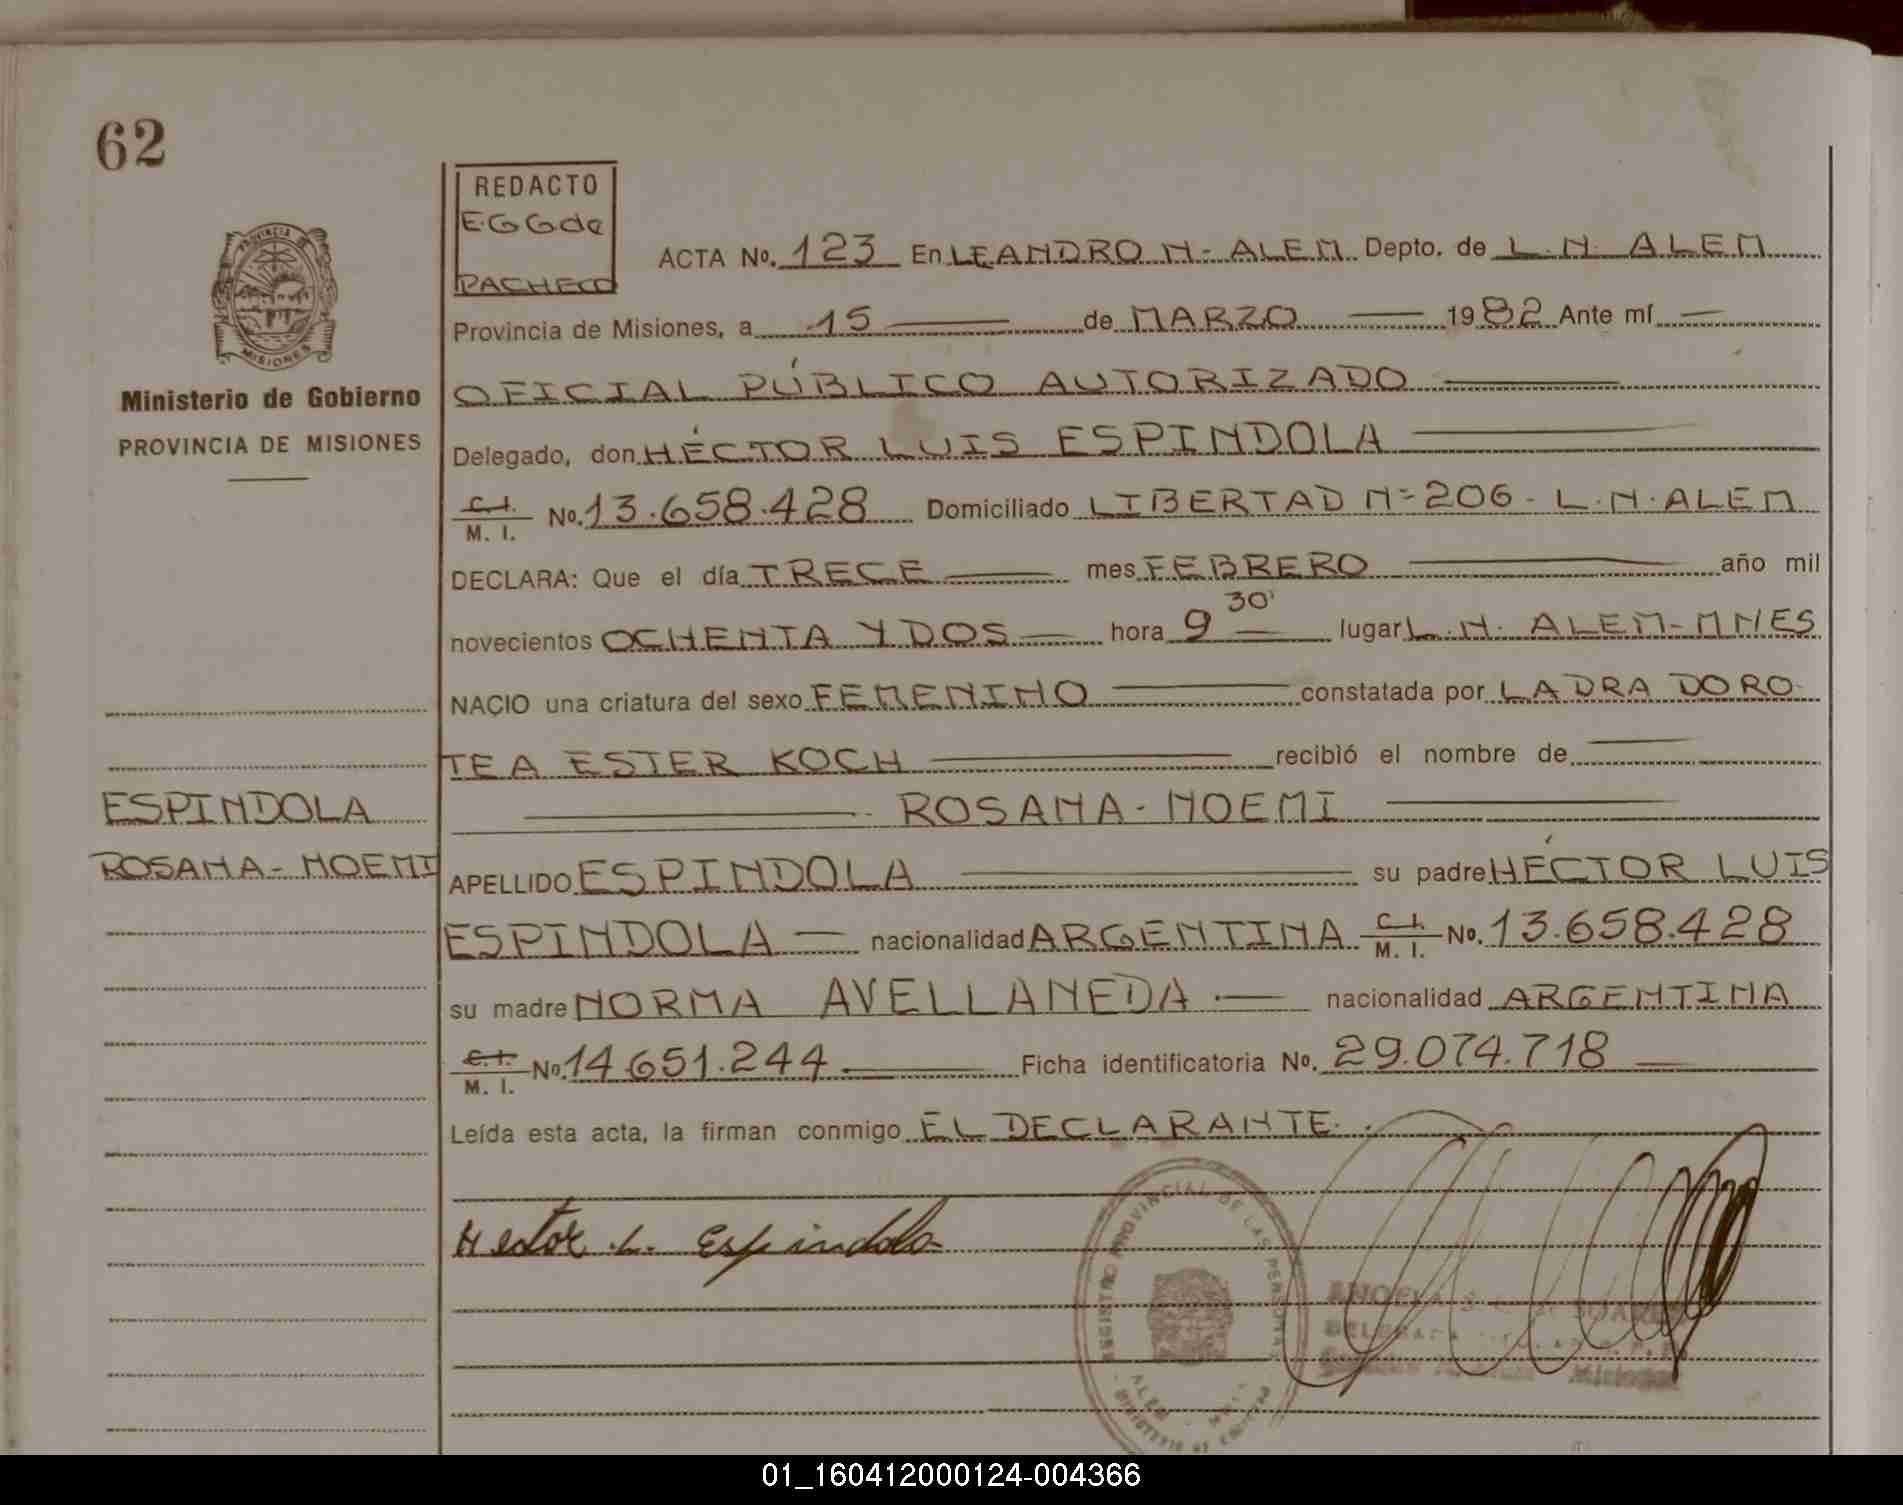 62
REDACTO
E.G G de
PACHECO
ACTA No. 123 En LEANDRO N- ALEM Depto. de L.N. ALEM
PROVINCIA DE
MISIONES
Provincia de Misiones, a 15 de MARZO 1982 Ante mí
Ministerio de Gobierno
PROVINCIA DE MISIONES
OFICIAL PÚBLICO AUTORIZADO
Delegado, don HÉCTOR LUIS ESPINDOLA
C.I. M. I. No. 13.658.428 Domiciliado LIBERTAD Nº 206 - L.N. ALEM
DECLARA: Que el día TRECE mes FEBRERO año mil
novecientos OCHENTA Y DOS hora 9 30' lugar L.N. ALEM-MNES
NACIO una criatura del sexo FEMENINO constatada por LA DRA DORO
TEA ESTER KOCH recibió el nombre de
ROSANA-NOEMI
ESPINDOLA
ROSANA-NOEMI
APELLIDO ESPINDOLA su padre HÉCTOR LUIS
ESPINDOLA nacionalidad ARGENTINA C.I. M. I. No. 13.658.428
su madre NORMA AVELLANEDA nacionalidad ARGENTINA
C.I. M. I. No. 14.651.244 Ficha identificatoria No. 29.074.718
Leída esta acta, la firman conmigo EL DECLARANTE.
Hector L. Espindola
REGISTRO PROVINCIAL DE LAS PERSONAS
ALEM
Misiones
01_160412000124-004366